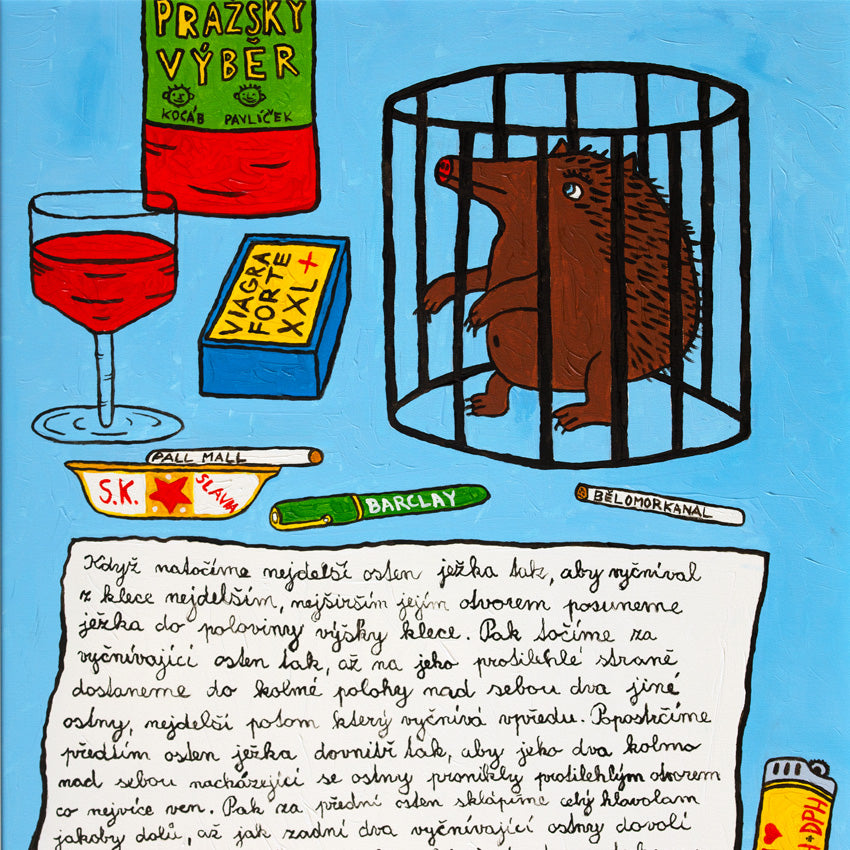 PRAŽSKÝ
VÝBĚR
KOCÁB PAVLÍČEK
VIAGRA
FORTE
XXL+
PALL MALL
S.K. SLAVIA
BARCLAY
BĚLOMORKANAL
Když natočíme nejdelší osten ježka tak, aby vyčníval
z klece nejdelším, nejširším jejím otvorem posuneme
ježka do poloviny výšky klece. Pak točíme za
vyčnívající osten tak, až na jeho protilehlé straně
dostaneme do kolmé polohy nad sebou dva jiné
ostny, nejdelší potom který vyčnívá vpředu. Popostrčíme
předtím osten ježka dovnitř tak, aby jeho dva kolmo
nad sebou nacházející se ostny pronikly protilehlým otvorem
co nejvíce ven. Pak za přední osten sklápíme celý hlavolam
jakoby dolů, až jak zadní dva vyčnívající ostny dovolí
+DPH